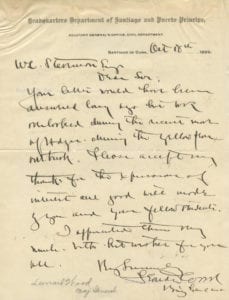 Headquarters Department of Santiago and Puerto Principe,
ADJUTANT GENERAL'S OFFICE, CIVIL DEPARTMENT.
SANTIAGO DE CUBA, Oct 18th 1899.
Dear Sir:
Your letter would have been
answered long ago but was
overlooked during the recent
during the yellow fever
outbreak. Please accept my
thanks for the expression of
interest and good will made
by you and your fellow students.
I appreciated them very
much. With best wishes for you
all.
Leonard Wood